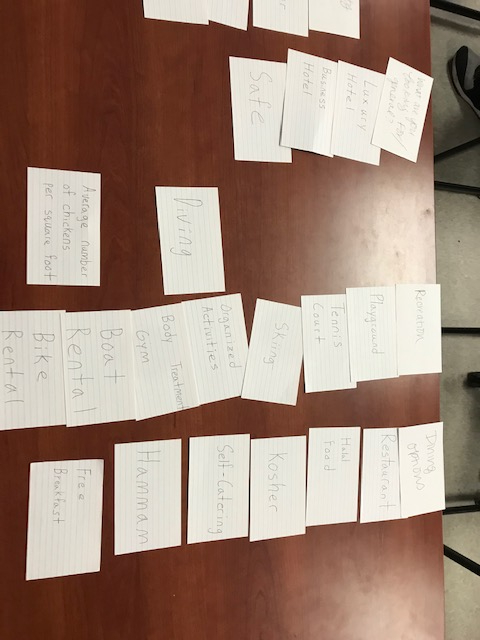 Luxury
Hotel
Business
Hotel
Safe
Diving
Average number
of chickens
per square foot
Playground
Tennis
Court
Skiing
Organized
Activities
Body Treatment
Gym
Boat
Rental
Bike
Rental
Dining
options
Restaurant
Halal
Food
Kosher
Self-Catering
Hammam
Free
Breakfast